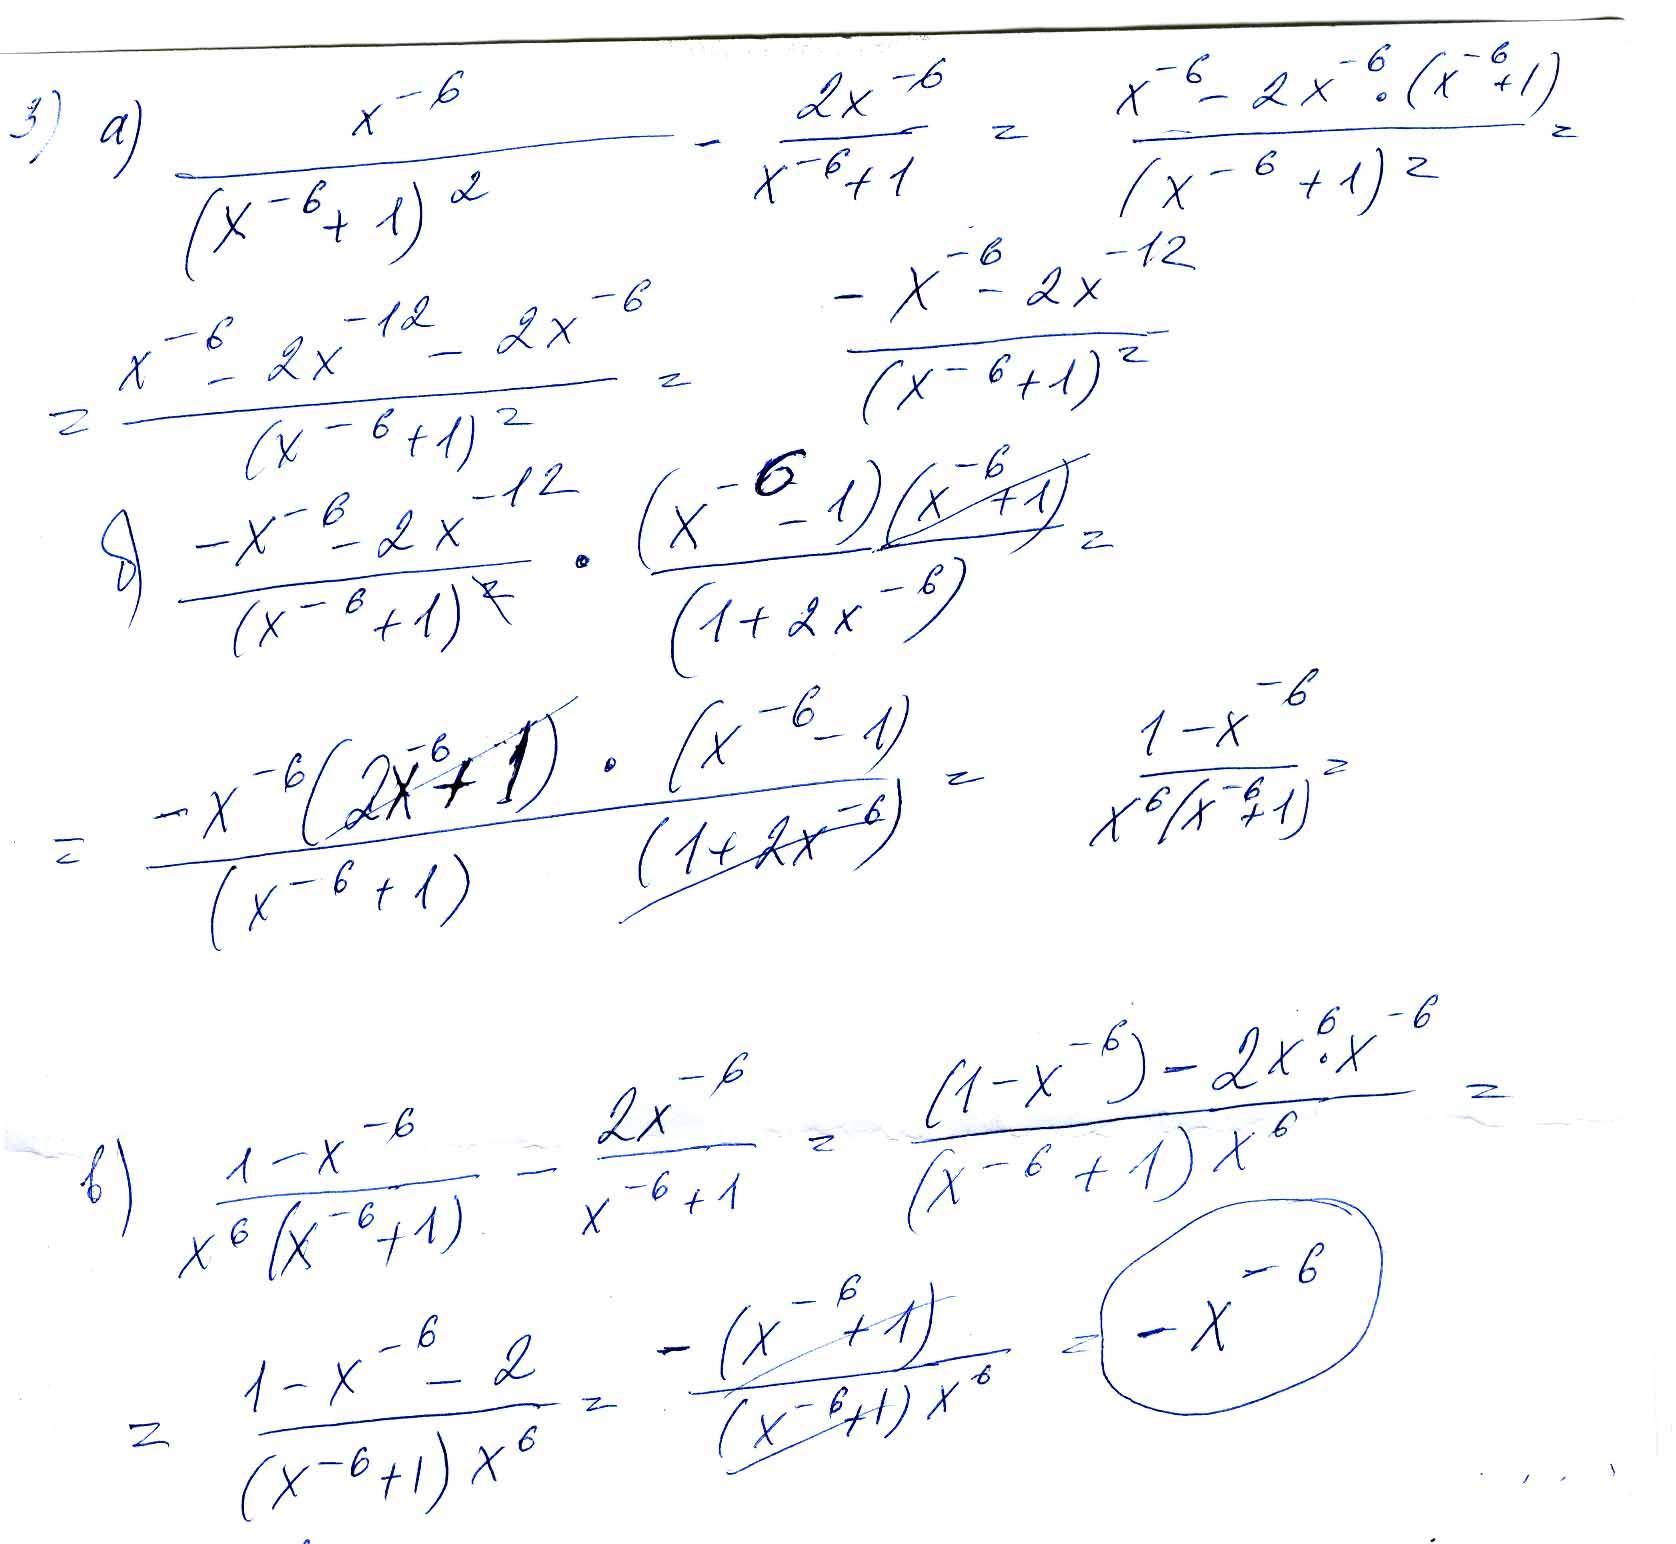 3) а) x^{-6} / (x^{-6} + 1)^2 - 2x^{-6} / (x^{-6} + 1) = (x^{-6} - 2x^{-6} · (x^{-6} + 1)) / (x^{-6} + 1)^2 =
= (x^{-6} - 2x^{-12} - 2x^{-6}) / (x^{-6} + 1)^2 = (-x^{-6} - 2x^{-12}) / (x^{-6} + 1)^2
б) (-x^{-6} - 2x^{-12}) / (x^{-6} + 1)^2 · (x^{-6} - 1)(x^{-6} + 1) / (1 + 2x^{-6}) =
= -x^{-6}(2x^{-6} + 1) · (x^{-6} - 1) / (x^{-6} + 1) (1 + 2x^{-6}) = (1 - x^{-6}) / x^6(x^{-6} + 1) =
в) (1 - x^{-6}) / x^6(x^{-6} + 1) - 2x^{-6} / (x^{-6} + 1) = ((1 - x^{-6}) - 2x^6 · x^{-6}) / (x^{-6} + 1)x^6 =
= (1 - x^{-6} - 2) / (x^{-6} + 1)x^6 = -(x^{-6} + 1) / (x^{-6} + 1)x^6 = -x^{-6}